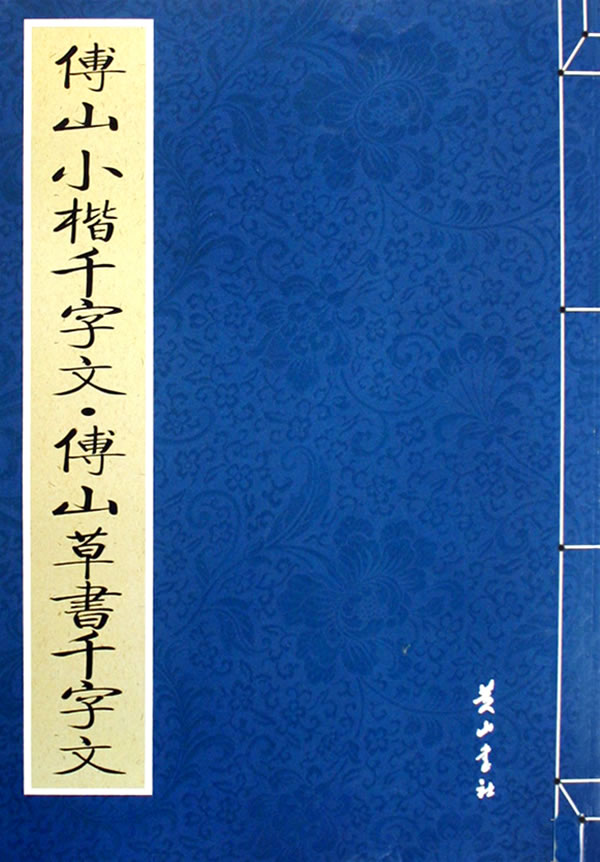 傅山小楷千字文·傅山草書千字文
黄山书社